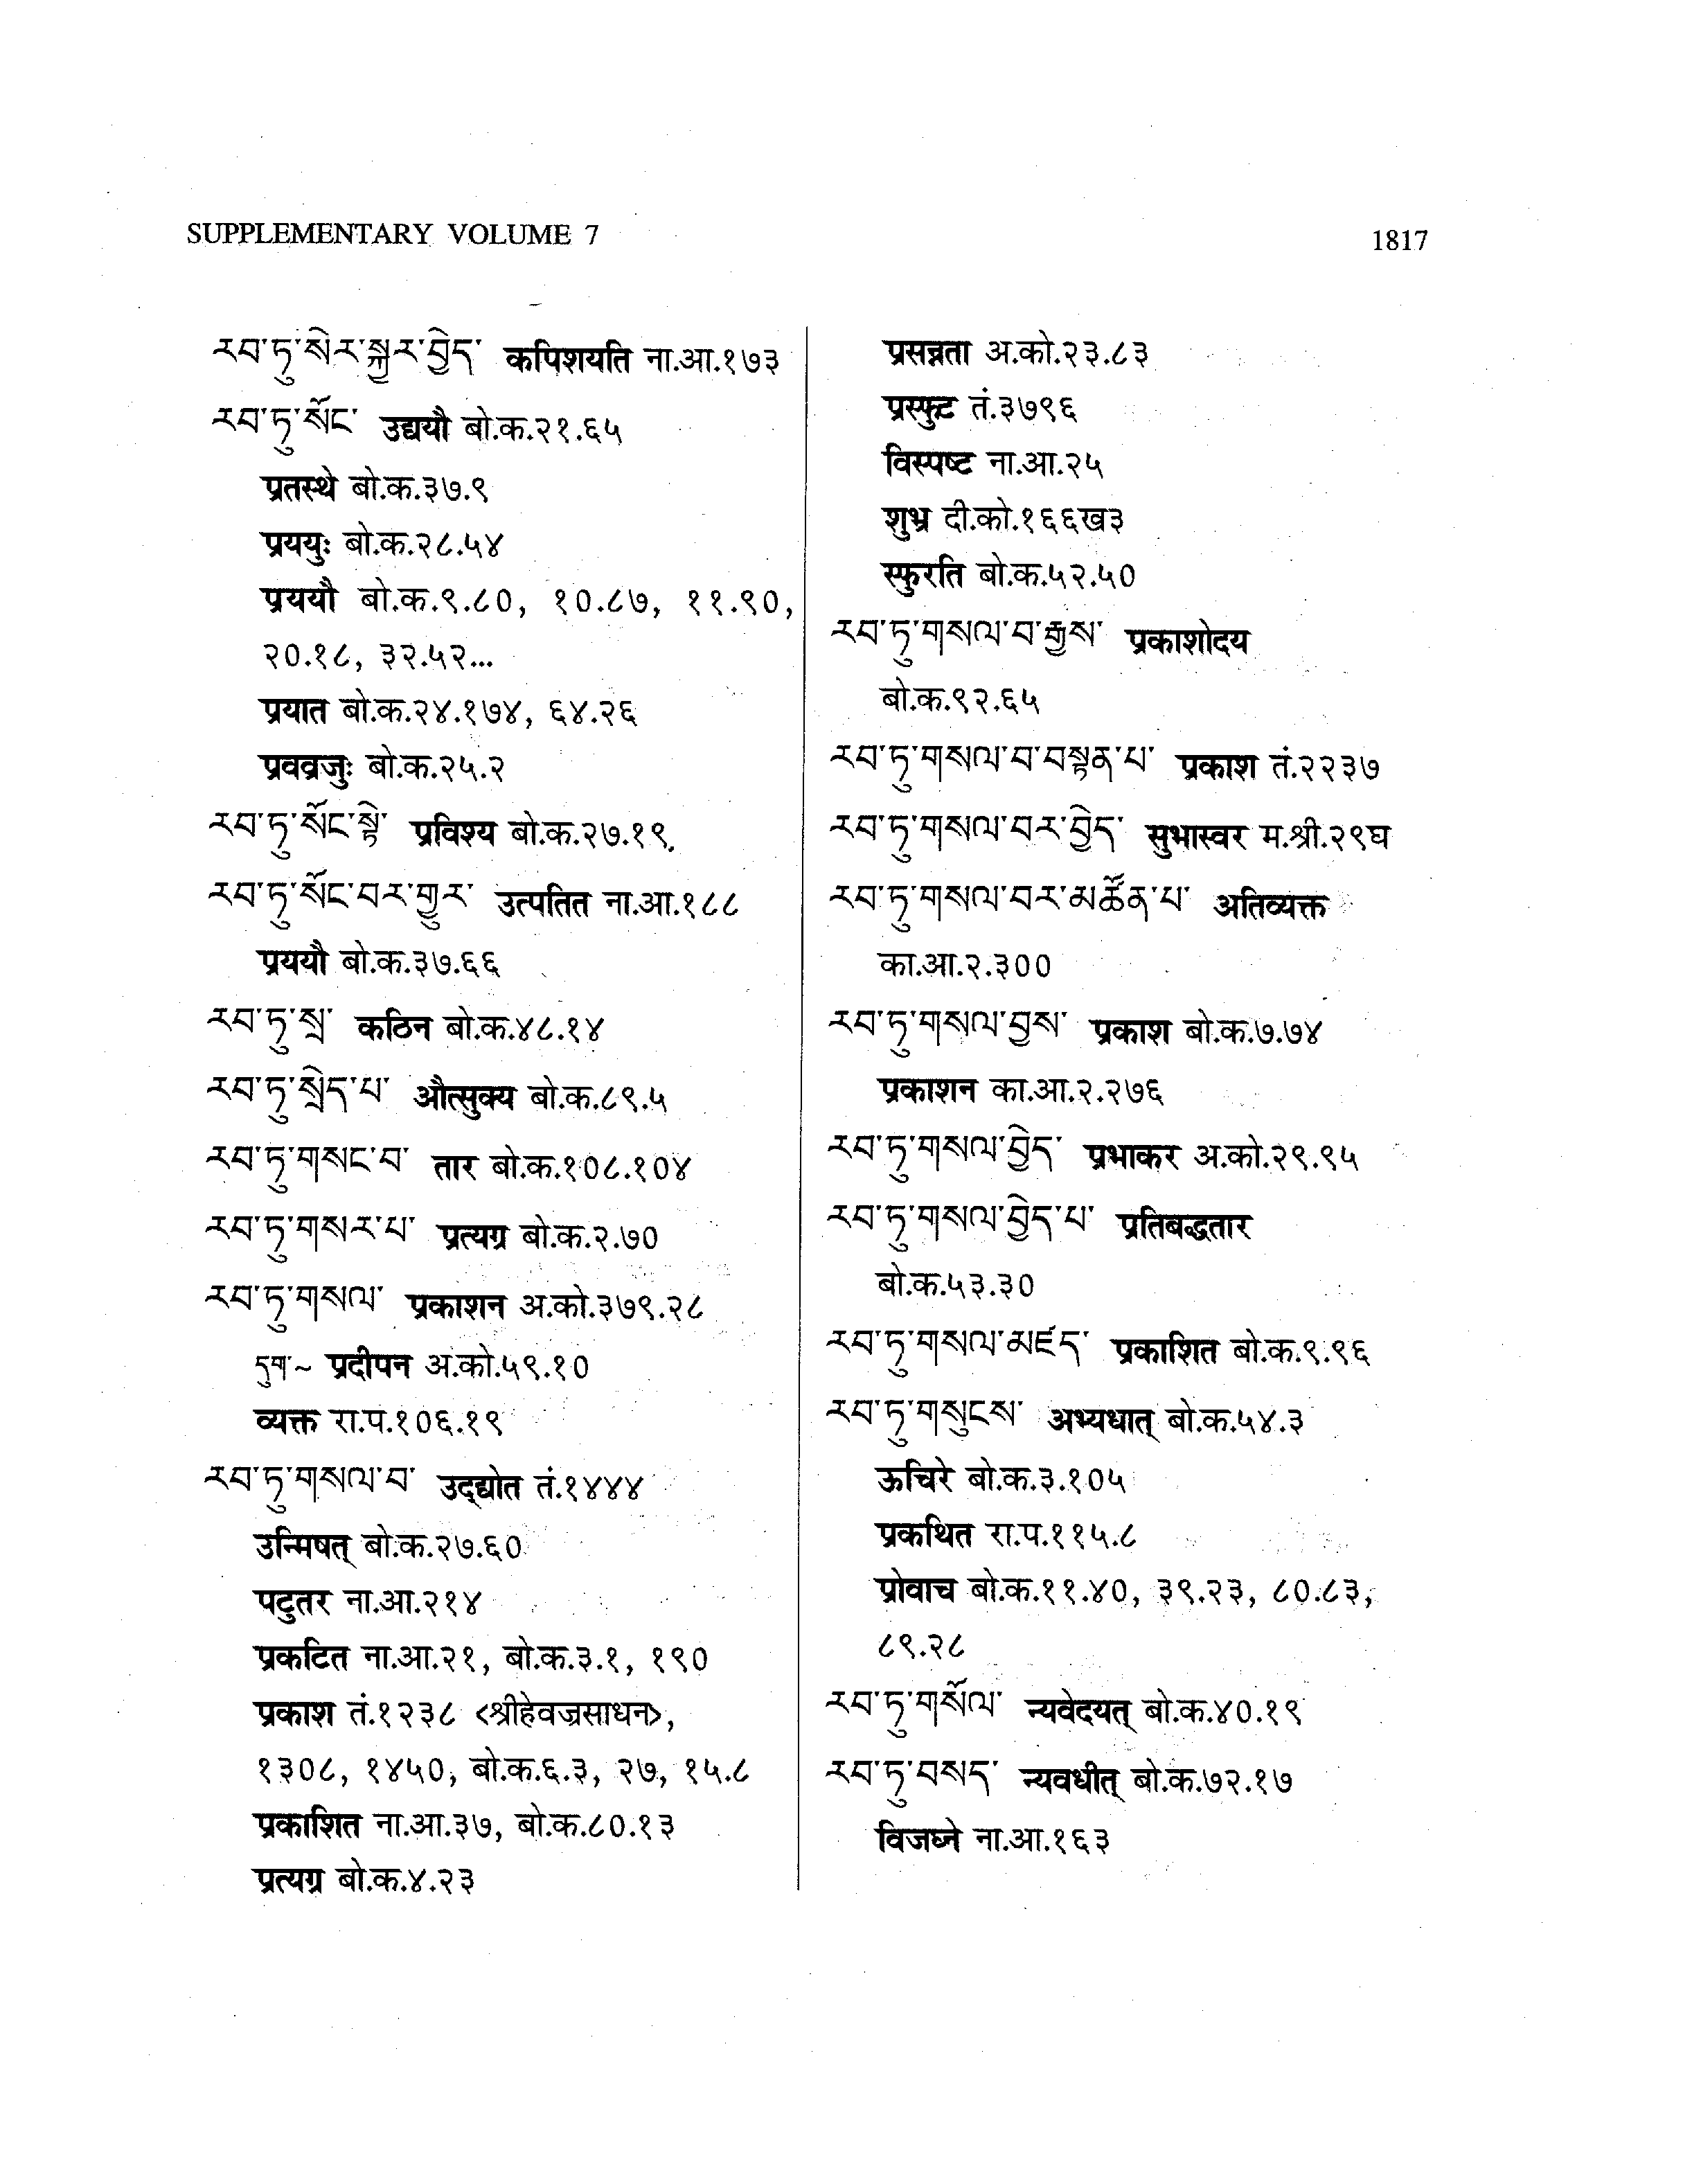 SUPPLEMENTARY VOLUME 7
1817
རབ་ཏུ་སེར་སྐྱར་བྱེད་ कपिशयति ना.आ.१७३
རབ་ཏུ་སོང་ उद्ययौ बो.क.२१.६५
प्रतस्थे बो.क.३७.९
प्रययुः बो.क.२८.५४
प्रययौ बो.क.९.८०, १०.८७, ११.९०,
२०.१८, ३२.५२...
प्रयात बो.क.२४.१७४, ६४.२६
प्रवव्रजुः बो.क.२५.२
རབ་ཏུ་སོང་སྟེ་ प्रविश्य बो.क.२७.१९
རབ་ཏུ་སོང་བར་གྱུར་ उत्पतित ना.आ.१८८
प्रययौ बो.क.३७.६६
རབ་ཏུ་སྲ་ कठिन बो.क.४८.१४
རབ་ཏུ་སྲེད་པ་ औत्सुक्य बो.क.८९.५
རབ་ཏུ་གསང་བ་ तार बो.क.१०८.१०४
རབ་ཏུ་གསར་པ་ प्रत्यग्र बो.क.२.७०
རབ་ཏུ་གསལ་ प्रकाशन अ.को.३७९.२८
དུག་~ प्रदीपन अ.को.५९.१०
व्यक्त रा.प.१०६.१९
རབ་ཏུ་གསལ་བ་ उद्द्योत तं.१४४४
उन्मिषत् बो.क.२७.६०
पटुतर ना.आ.२१४
प्रकटित ना.आ.२१, बो.क.३.१, १९०
प्रकाश तं.१२३८ <श्रीहेवज्रसाधन>,
१३०८, १४५०, बो.क.६.३, २७, १५.८
प्रकाशित ना.आ.३७, बो.क.८०.१३
प्रत्यग्र बो.क.४.२३
प्रसन्नता अ.को.२३.८३
प्रस्फुट तं.३७९६
विस्पष्ट ना.आ.२५
शुभ्र दी.को.१६६ख३
स्फुरति बो.क.५२.५०
རབ་ཏུ་གསལ་བ་རྒྱས་ प्रकाशोदय
बो.क.९२.६५
རབ་ཏུ་གསལ་བ་བསྟན་པ་ प्रकाश तं.२२३७
རབ་ཏུ་གསལ་བར་བྱེད་ सुभास्वर म.श्री.२९घ
རབ་ཏུ་གསལ་བར་མཚོན་པ་ अतिव्यक्त
का.आ.२.३००
རབ་ཏུ་གསལ་བྱས་ प्रकाश बो.क.७.७४
प्रकाशन का.आ.२.२७६
རབ་ཏུ་གསལ་བྱེད་ प्रभाकर अ.को.२९.९५
རབ་ཏུ་གསལ་བྱེད་པ་ प्रतिबद्धतार
बो.क.५३.३०
རབ་ཏུ་གསལ་མཛད་ प्रकाशित बो.क.९.९६
རབ་ཏུ་གསུངས་ अभ्यधात् बो.क.५४.३
ऊचिरे बो.क.३.१०५
प्रकथित रा.प.११५.८
प्रोवाच बो.क.११.४०, ३९.२३, ८०.८३,
८९.२८
རབ་ཏུ་གསོལ་ न्यवेदयत् बो.क.४०.१९
རབ་ཏུ་བསད་ न्यवधीत् बो.क.७२.१७
विजघ्ने ना.आ.१६३